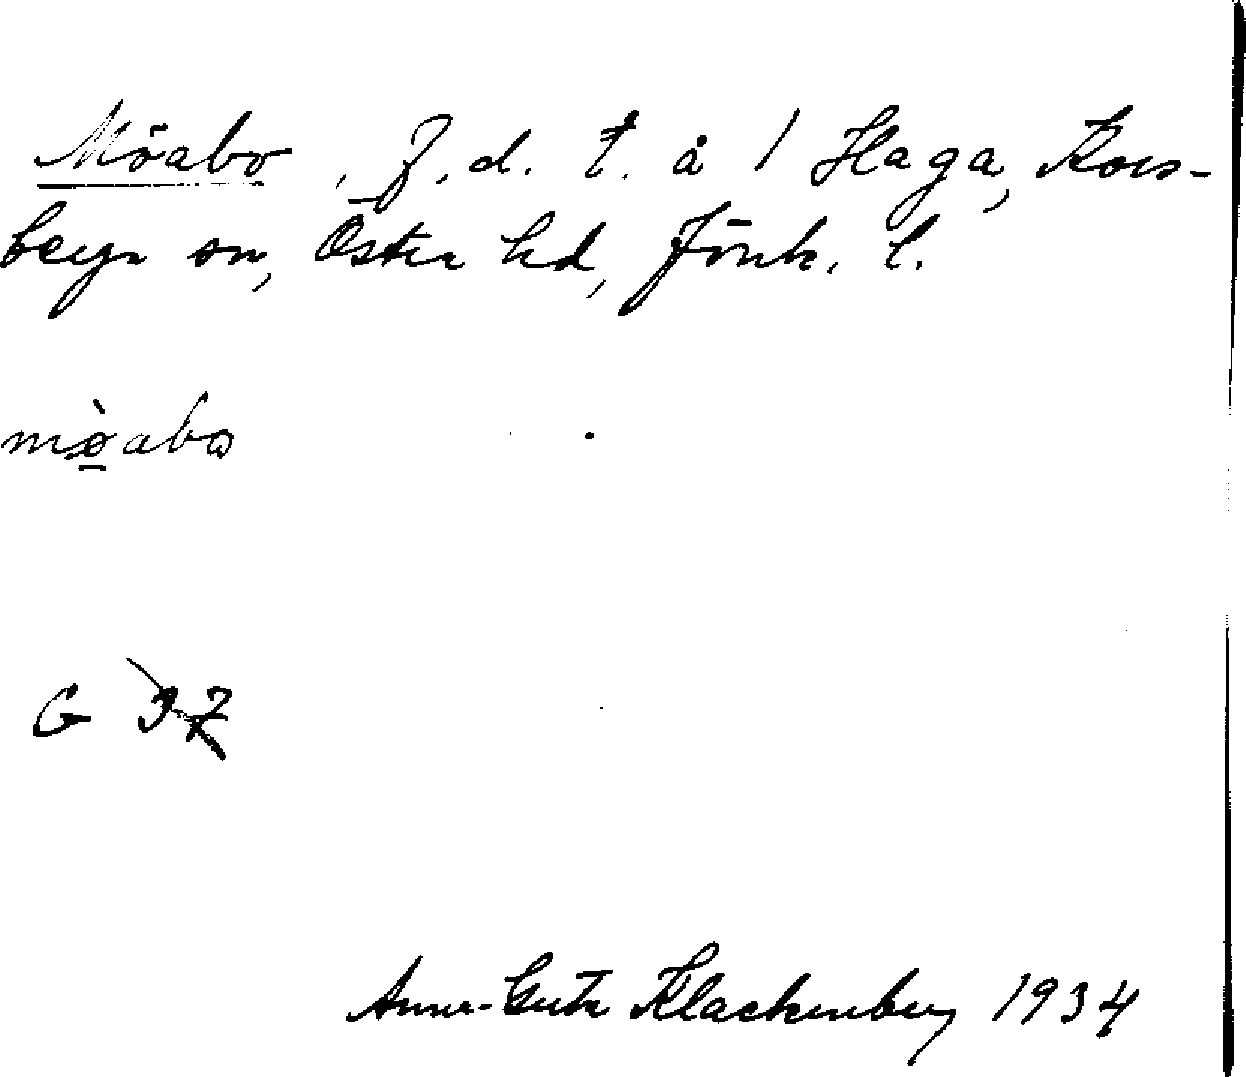 Möabo, f. d. t. å 1 Haga, Kors-
berga sn, Östra hd, Jönk. l.
mø̀abo
G 37
Anna-Greta Klackenberg 1934